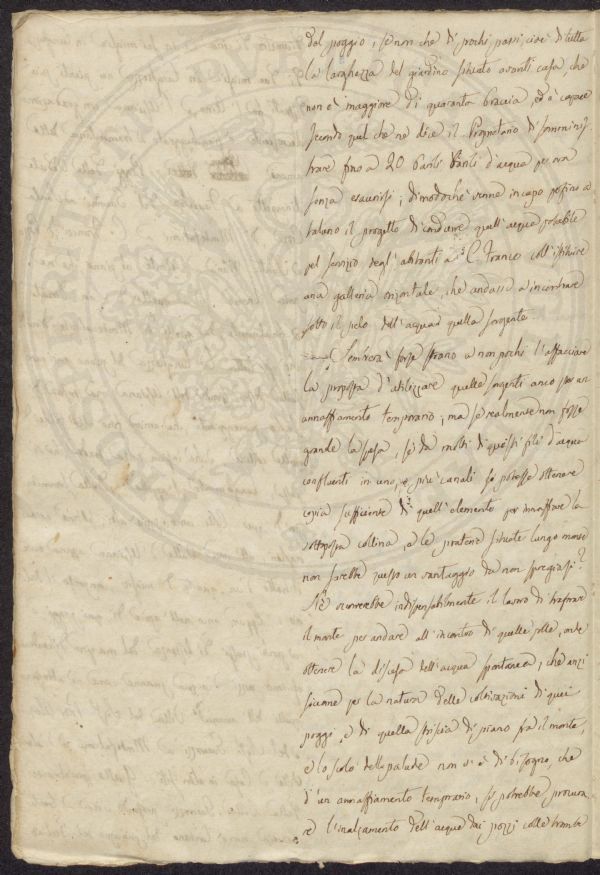 dal poggio, se non che di pochi passi, cioè di tutta
la larghezza del giardino situato avanti casa, che
non è maggiore di quaranta braccia, ed è capace
secondo quel che ne dice il Proprietario di sommini,,
trare fino a 20 Barili d'acqua per ora
senza esaurirsi; dimodochè venne in capo perfino a
taluno il progetto di condurre quell'acqua potabile
pel servizio degl'abitanti a C. Franco coll'istituire
una galleria orizontale, che andasse a incontrare
sotto il suolo dell'acqua quella sorgente.
Sembrerà forse strano a non pochi l'affacciare
la proposta d'utilizzare quelle sorgenti anco per un
annaffiamento temporario; ma se realmente non fosse
grande la spesa, se da molti di questi fili d'acqua
confluenti in uno, o più canali si potesse ottenere
copia sufficiente di quell'elemento per innaffiare la
sottoposta collina, e le praterie situate lungo mare
non sarebbe questo un vantaggio da non spregiarsi?
Nè occorrerebbe indispensabilmente il lavoro di traforare
il monte per andare all'incontro di quelle polle, onde
ottenere la discesa dell'acqua spontanea, che anzi
siccome per la natura delle coltivazioni di quei
poggi, e di quella striscia di piano fra il monte,
e lo scolo della palude non vi è di bisogno, che
d'un annaffiamento temporario, si potrebbe procura,,
re l'inalzamento dell'acqua dai pozzi colle trombe